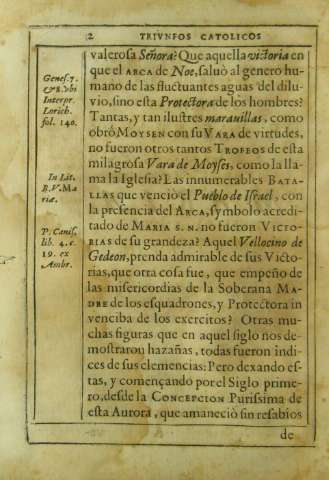 2 TRIVNFOS CATOLICOS
valerosa Señora? Que aquella victoria en
que el ARCA de Noe, saluò al genero hu-
mano de las fluctuantes aguas del dilu-
vio, sino esta Protectora de los hombres?
Tantas, y tan ilustres marauillas, como
obrò MOYSEN con su VARA de virtudes,
no fueron otros tantos TROFEOS de esta
milagrosa Vara de Moyses, como la lla-
ma la Iglesia? Las innumerables BATA-
LLAS que venciò el Pueblo de Israel, con
la presencia del ARCA, symbolo acredi-
tado de MARIA S. N. no fueron VICTO-
RIAS de su grandeza? Aquel Vellocino de
Gedeon, prenda admirable de sus Victo-
rias, que otra cosa fue, que empeño de
las misericordias de la Soberana MA-
DRE de los esquadrones, y Protectora in-
venciba de los exercitos? Otras mu-
chas figuras que en aquel siglo nos de-
mostrarou hazañas, todas fueron indi-
ces de sus clemencias: Pero dexando es-
tas, y començando por el Siglo prime-
ro, desde la CONCEPCION Purissima de
esta Aurora, que amaneciò sin resabios
de
Genes. 7.
& 8. Vbi
Interpr.
Lorich.
fol. 140.
In Lit.
B. V. Ma
riæ.
P. Canis.
lib. 4. c.
19. ex
Ambr.